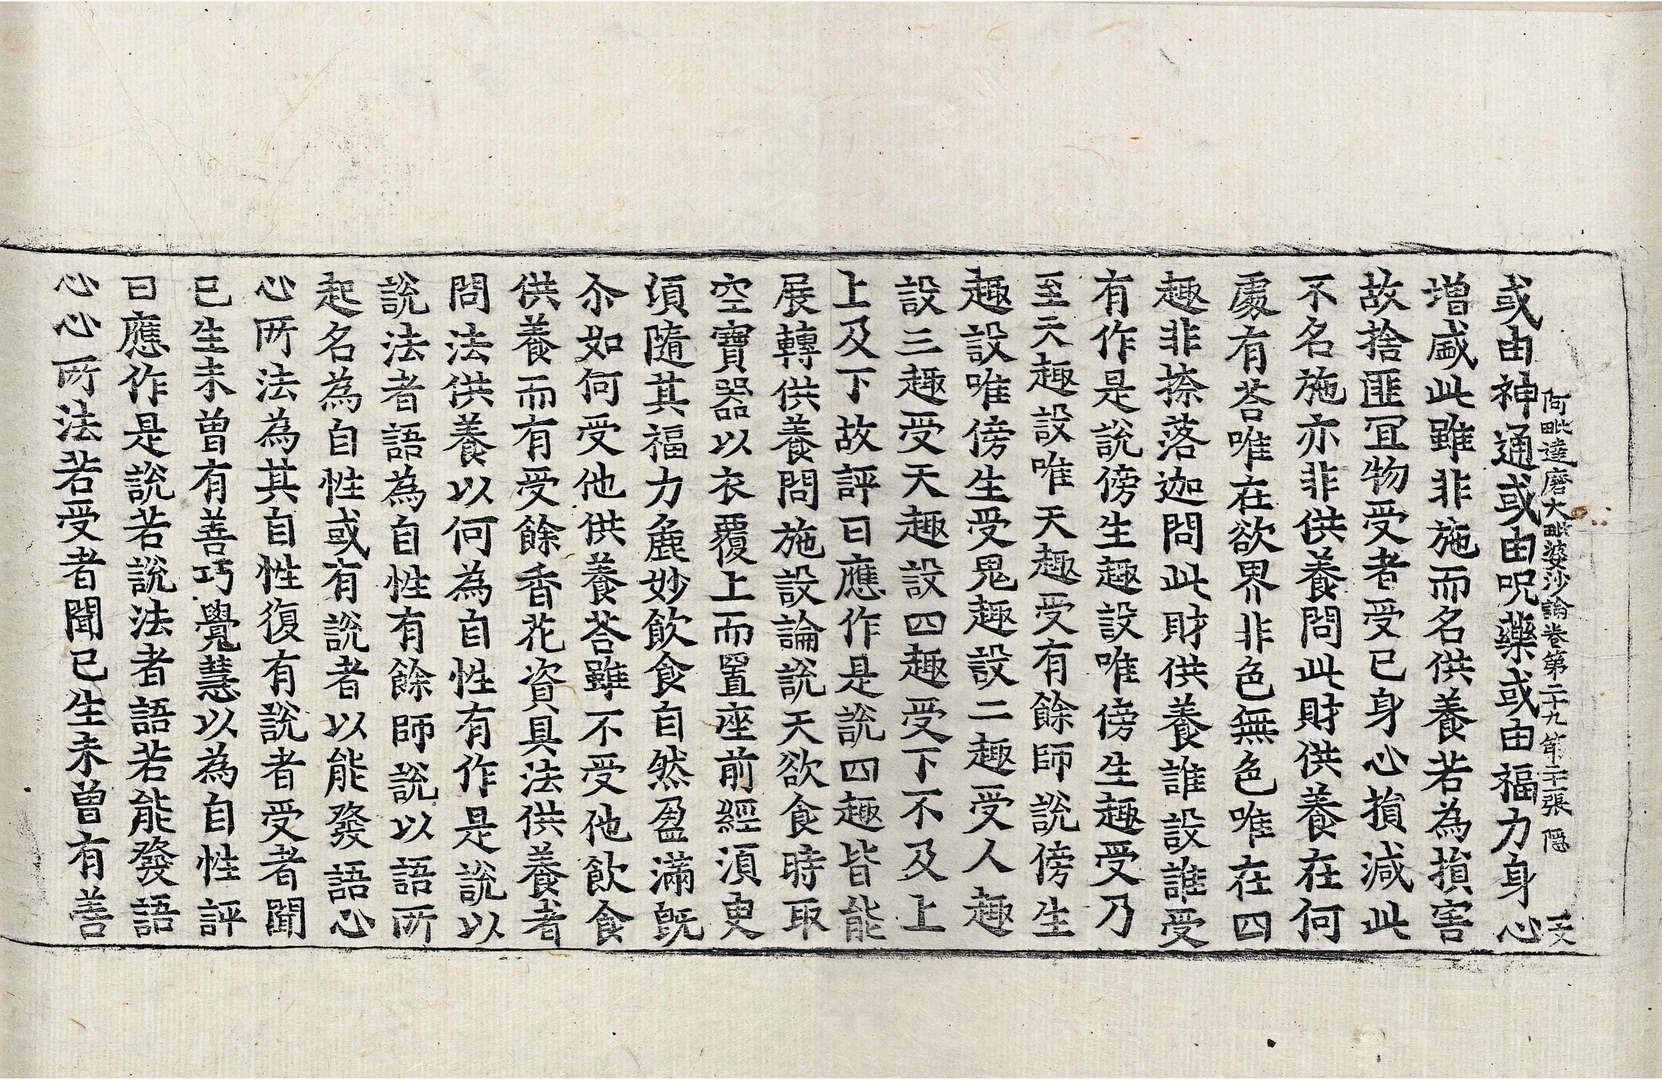 阿毗達磨大毗婆沙論卷第二十九 張 隱
或由神通或由呪藥或由福力身心
增盛此雖非施而名供養若為損害
故捨匪冝物受者受已身心損減此
不名施亦非供養問此財供養在何
處有荅唯在欲界非色無色唯在四
趣非捺落迦問此財供養誰設誰受
有作是說傍生趣設唯傍生趣受乃
至天趣設唯天趣受有餘師說傍生
趣設唯傍生受鬼趣設二趣受人趣
設三趣受天趣設四趣受下不及上
上及下故評曰應作是說四趣皆能
展轉供養問施設論說天欲食時取
空寶器以衣覆上而置座前經湏臾
湏隨其福力麁妙飲食自然盈滿旣
尒如何受他供養荅雖不受他飲食
供養而有受餘香花資具法供養者
問法供養以何為自性有作是說以
說法者語為自性有餘師說以語所
起名為自性或有說者以能發語心
心所法為其自性復有說者受者聞
已生未曾有善巧覺慧以為自性評
曰應作是說若說法者語若能發語
心心所法若受者聞已生未曾有善